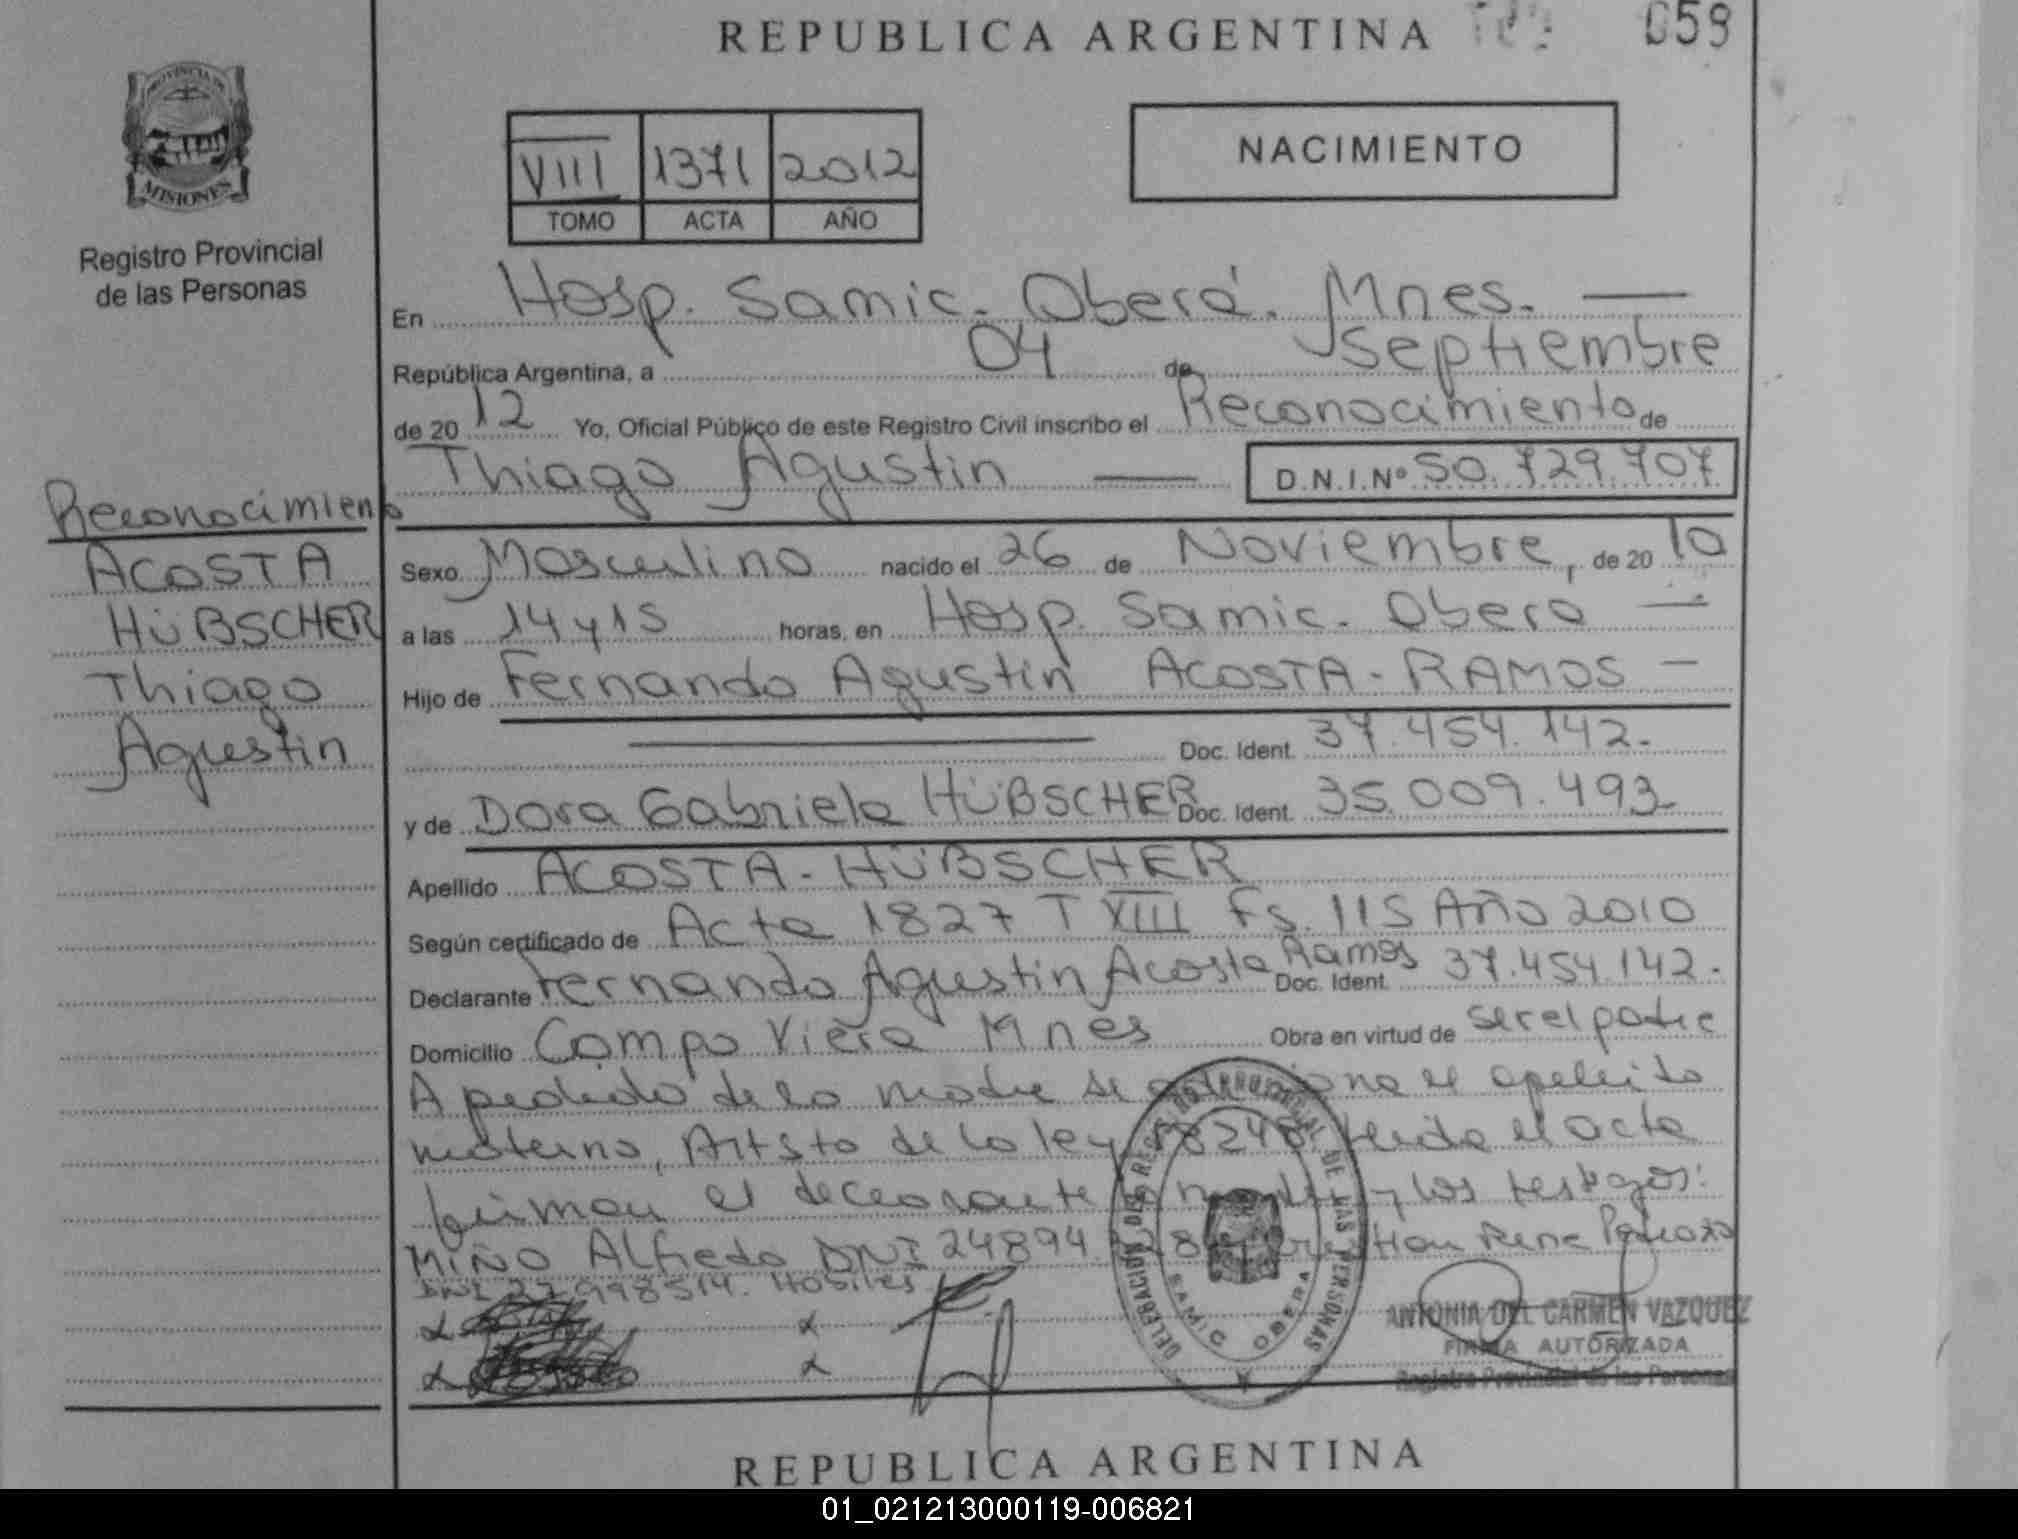 REPUBLICA ARGENTINA
059
PROVINCIA DE
MISIONES
Registro Provincial
de las Personas
VIII 1371 2012
TOMO ACTA AÑO
NACIMIENTO
En Hosp. Samic. Oberá. Mnes.
República Argentina, a 04 de Septiembre
de 20 12 Yo, Oficial Público de este Registro Civil inscribo el Reconocimiento de
Thiago Agustin D.N.I.Nº 50.729.707
Reconocimiento
ACOSTA
HÜBSCHER
Thiago
Agustin
Sexo Masculino nacido el 26 de Noviembre, de 20 10
a las 14 y 15 horas, en Hosp. Samic. Obera
Hijo de Fernando Agustin ACOSTA - RAMOS
Doc. Ident. 37.454.142.
y de Dora Gabriela HÜBSCHER Doc. Ident. 35.009.493
Apellido ACOSTA - HÜBSCHER
Según certificado de Acta 1827 T XIII Fs. 115 Año 2010
Declarante Fernando Agustin Acosta Ramos Doc. Ident. 37.454.142.
Domicilio Campo Viera Mnes Obra en virtud de ser el padre
A pedido de la madre se adiciona el apellido
materno, Art 5to de la ley 18248 leida el acta
firman el declarante la madre y los testigos:
MIÑO Alfredo DNI 24894 Rene Pedrozo
DNI 27.998514. Habiles
DELEGACION DEL REGISTRO PROVINCIAL DE LAS PERSONAS
SAMIC OBERA
ANTONIA DEL CARMEN VAZQUEZ
FIRMA AUTORIZADA
Registro Provincial de las Personas
REPUBLICA ARGENTINA
01_021213000119-006821